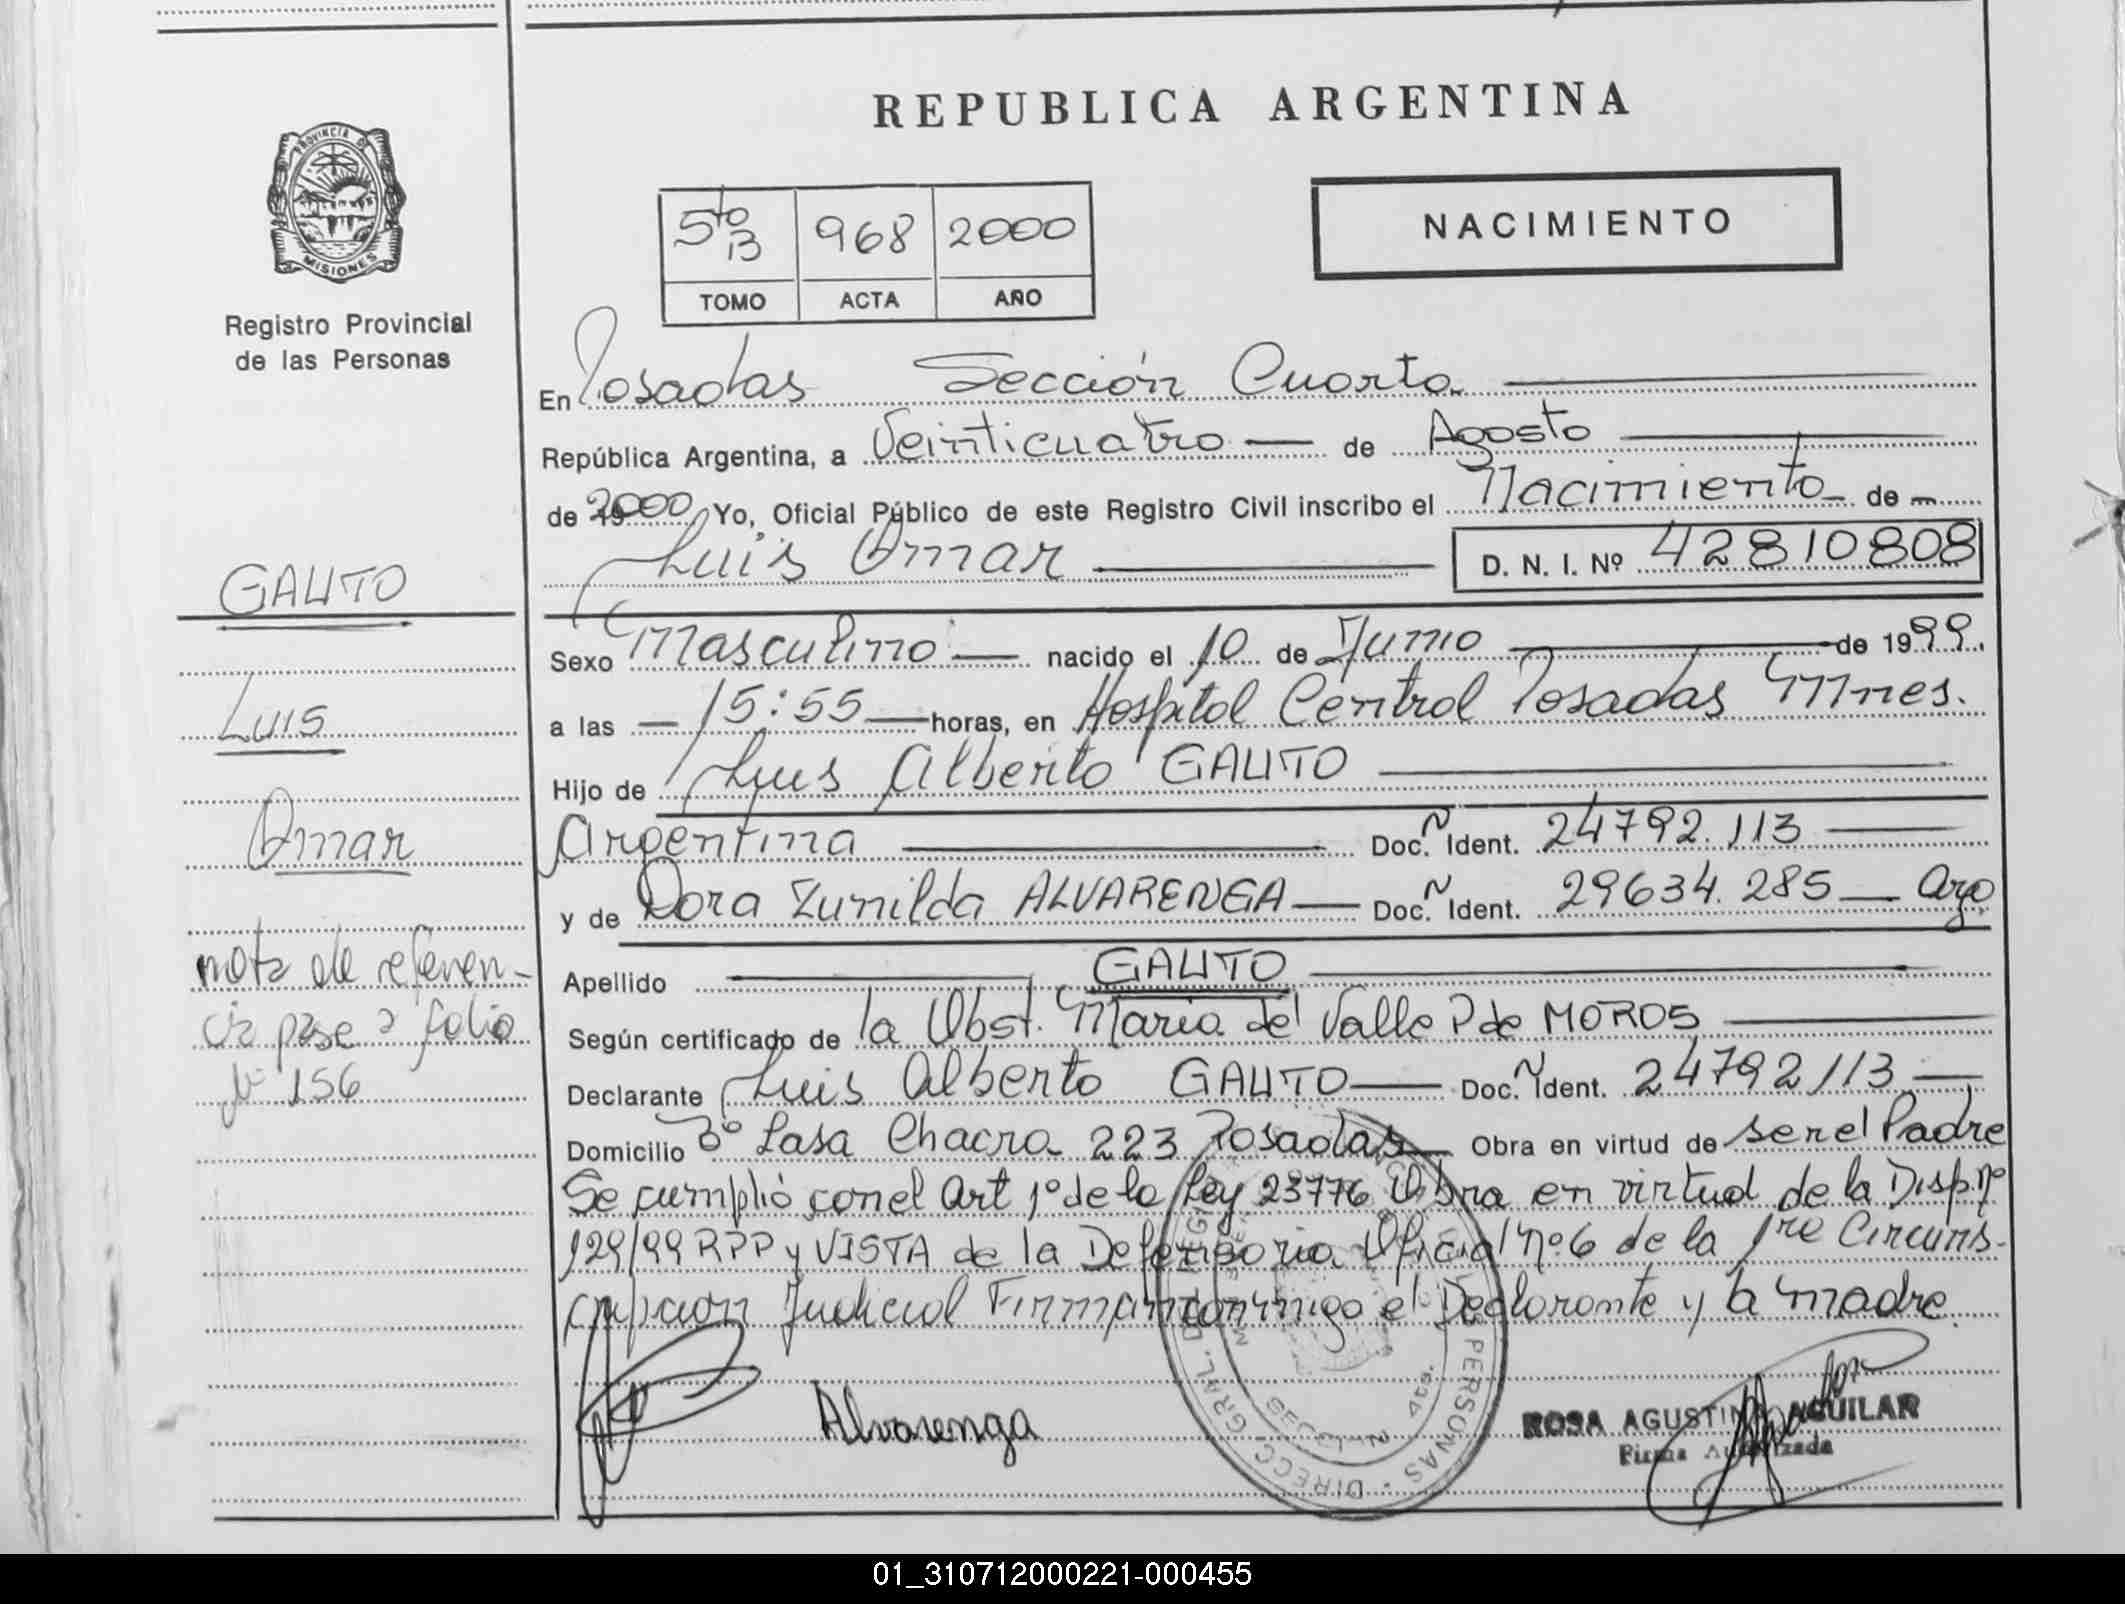 REPUBLICA ARGENTINA
PROVINCIA DE
MISIONES
Registro Provincial
de las Personas
5to 13 968 2000
TOMO ACTA AÑO
NACIMIENTO
En Posadas Sección Cuarta
República Argentina, a Veinticuatro de Agosto
de 2000 Yo, Oficial Público de este Registro Civil inscribo el Nacimiento de
Luis Omar D. N. I. Nº 42810808
GAUTO
Luis
Omar
nota de referen-
cia pase a folio
Nº 156
Sexo Masculino nacido el 10 de Junio de 1999.
a las 15:55 horas, en Hospital Central Posadas Mnes.
Hijo de Luis Alberto GAUTO
Argentina Doc. Ident. 24792.113
y de Dora Zunilda ALVARENGA Doc. Ident. 29634.285 Arg
Apellido GAUTO
Según certificado de la Obst. Maria del Valle P de MOROS
Declarante Luis Alberto GAUTO Doc. Ident. 24792113
Domicilio Bº Lasa Chacra 223 Posadas Obra en virtud de ser el Padre
Se cumplió con el Art 1º de la Ley 23776 Obra en virtud de la Disp. nº
129/99 RPP y VISTA de la Defensoria Oficial Nº 6 de la 1re Circuns-
cripcion Judicial Firman conmigo el Declarante y la madre
Alvarenga
ROSA AGUSTINA AGUILAR
Firma Autorizada
01_310712000221-000455